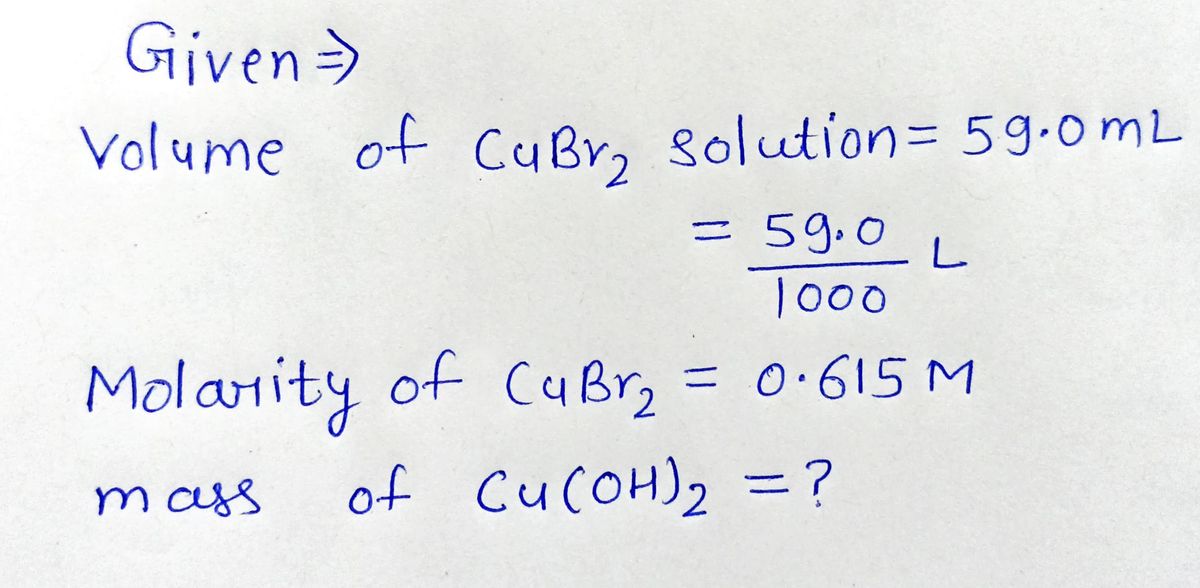 Given ⇒
Volume of CuBr₂ solution = 59.0 mL
= 59.0/1000 L
Molarity of CuBr₂ = 0.615 M
mass of Cu(OH)₂ = ?